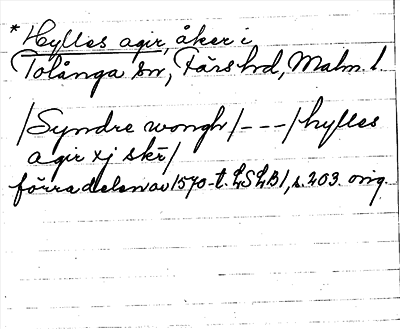 *Hylles agir, åker i
Tolånga sn, Färs hd, Malm. l.
/Syndre wongh/---/hylles
agir xj skr/
förra delen av 1570-t. LSLB1, s. 203. orig.